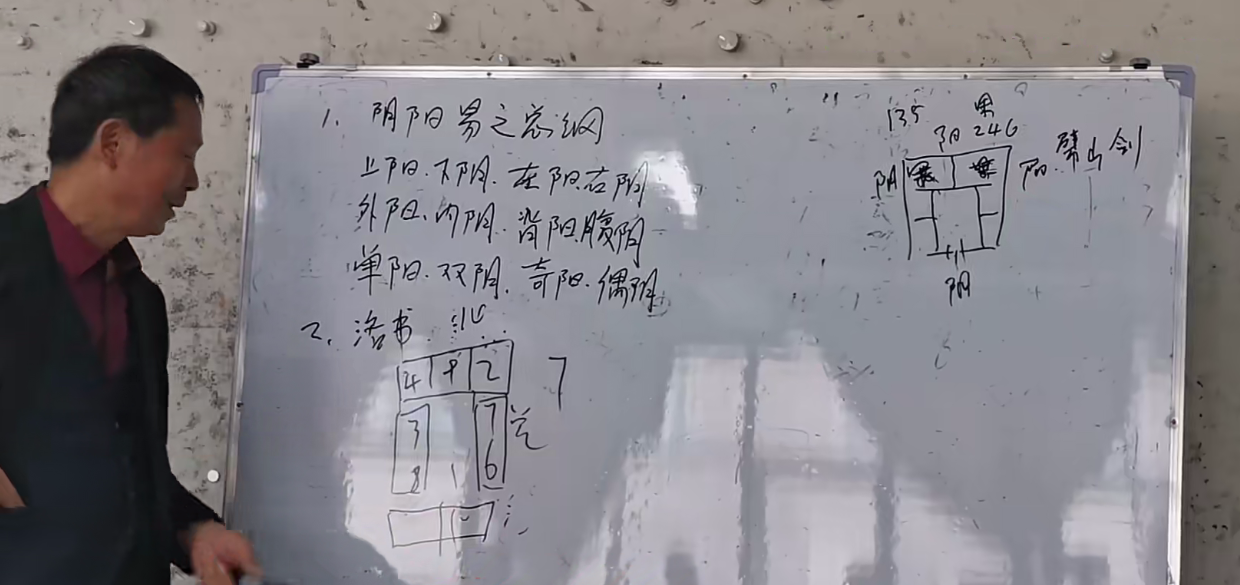 1. 阴阳易之总纲
上阳.下阴.左阳右阴
外阳.内阴.背阳腹阴
单阳.双阴.奇阳.偶阴
2. 洛书. 北
4 9 2
7
3 7
8 1 6
135
阳 246
阴
阳
劈山剑
阴